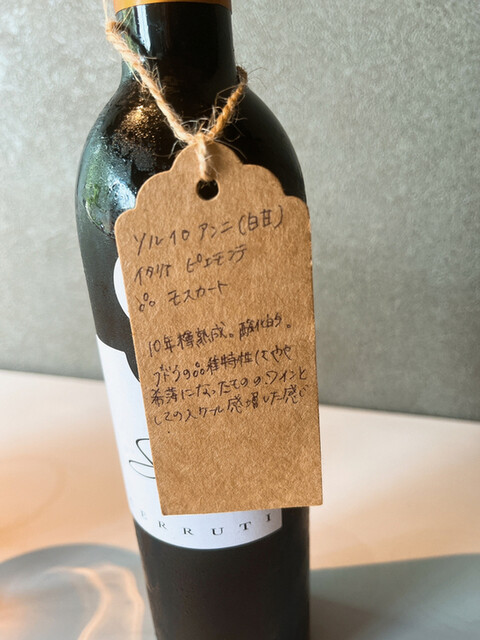 ソルイロ アンニ(白甘)
イタリア ピエモンテ
品 モスカート
10年樽熟成。酸化的。
ブドウの品種特性はやや
希薄になったものの、ワインと
してのスケール感増した感じ
ERRUTI